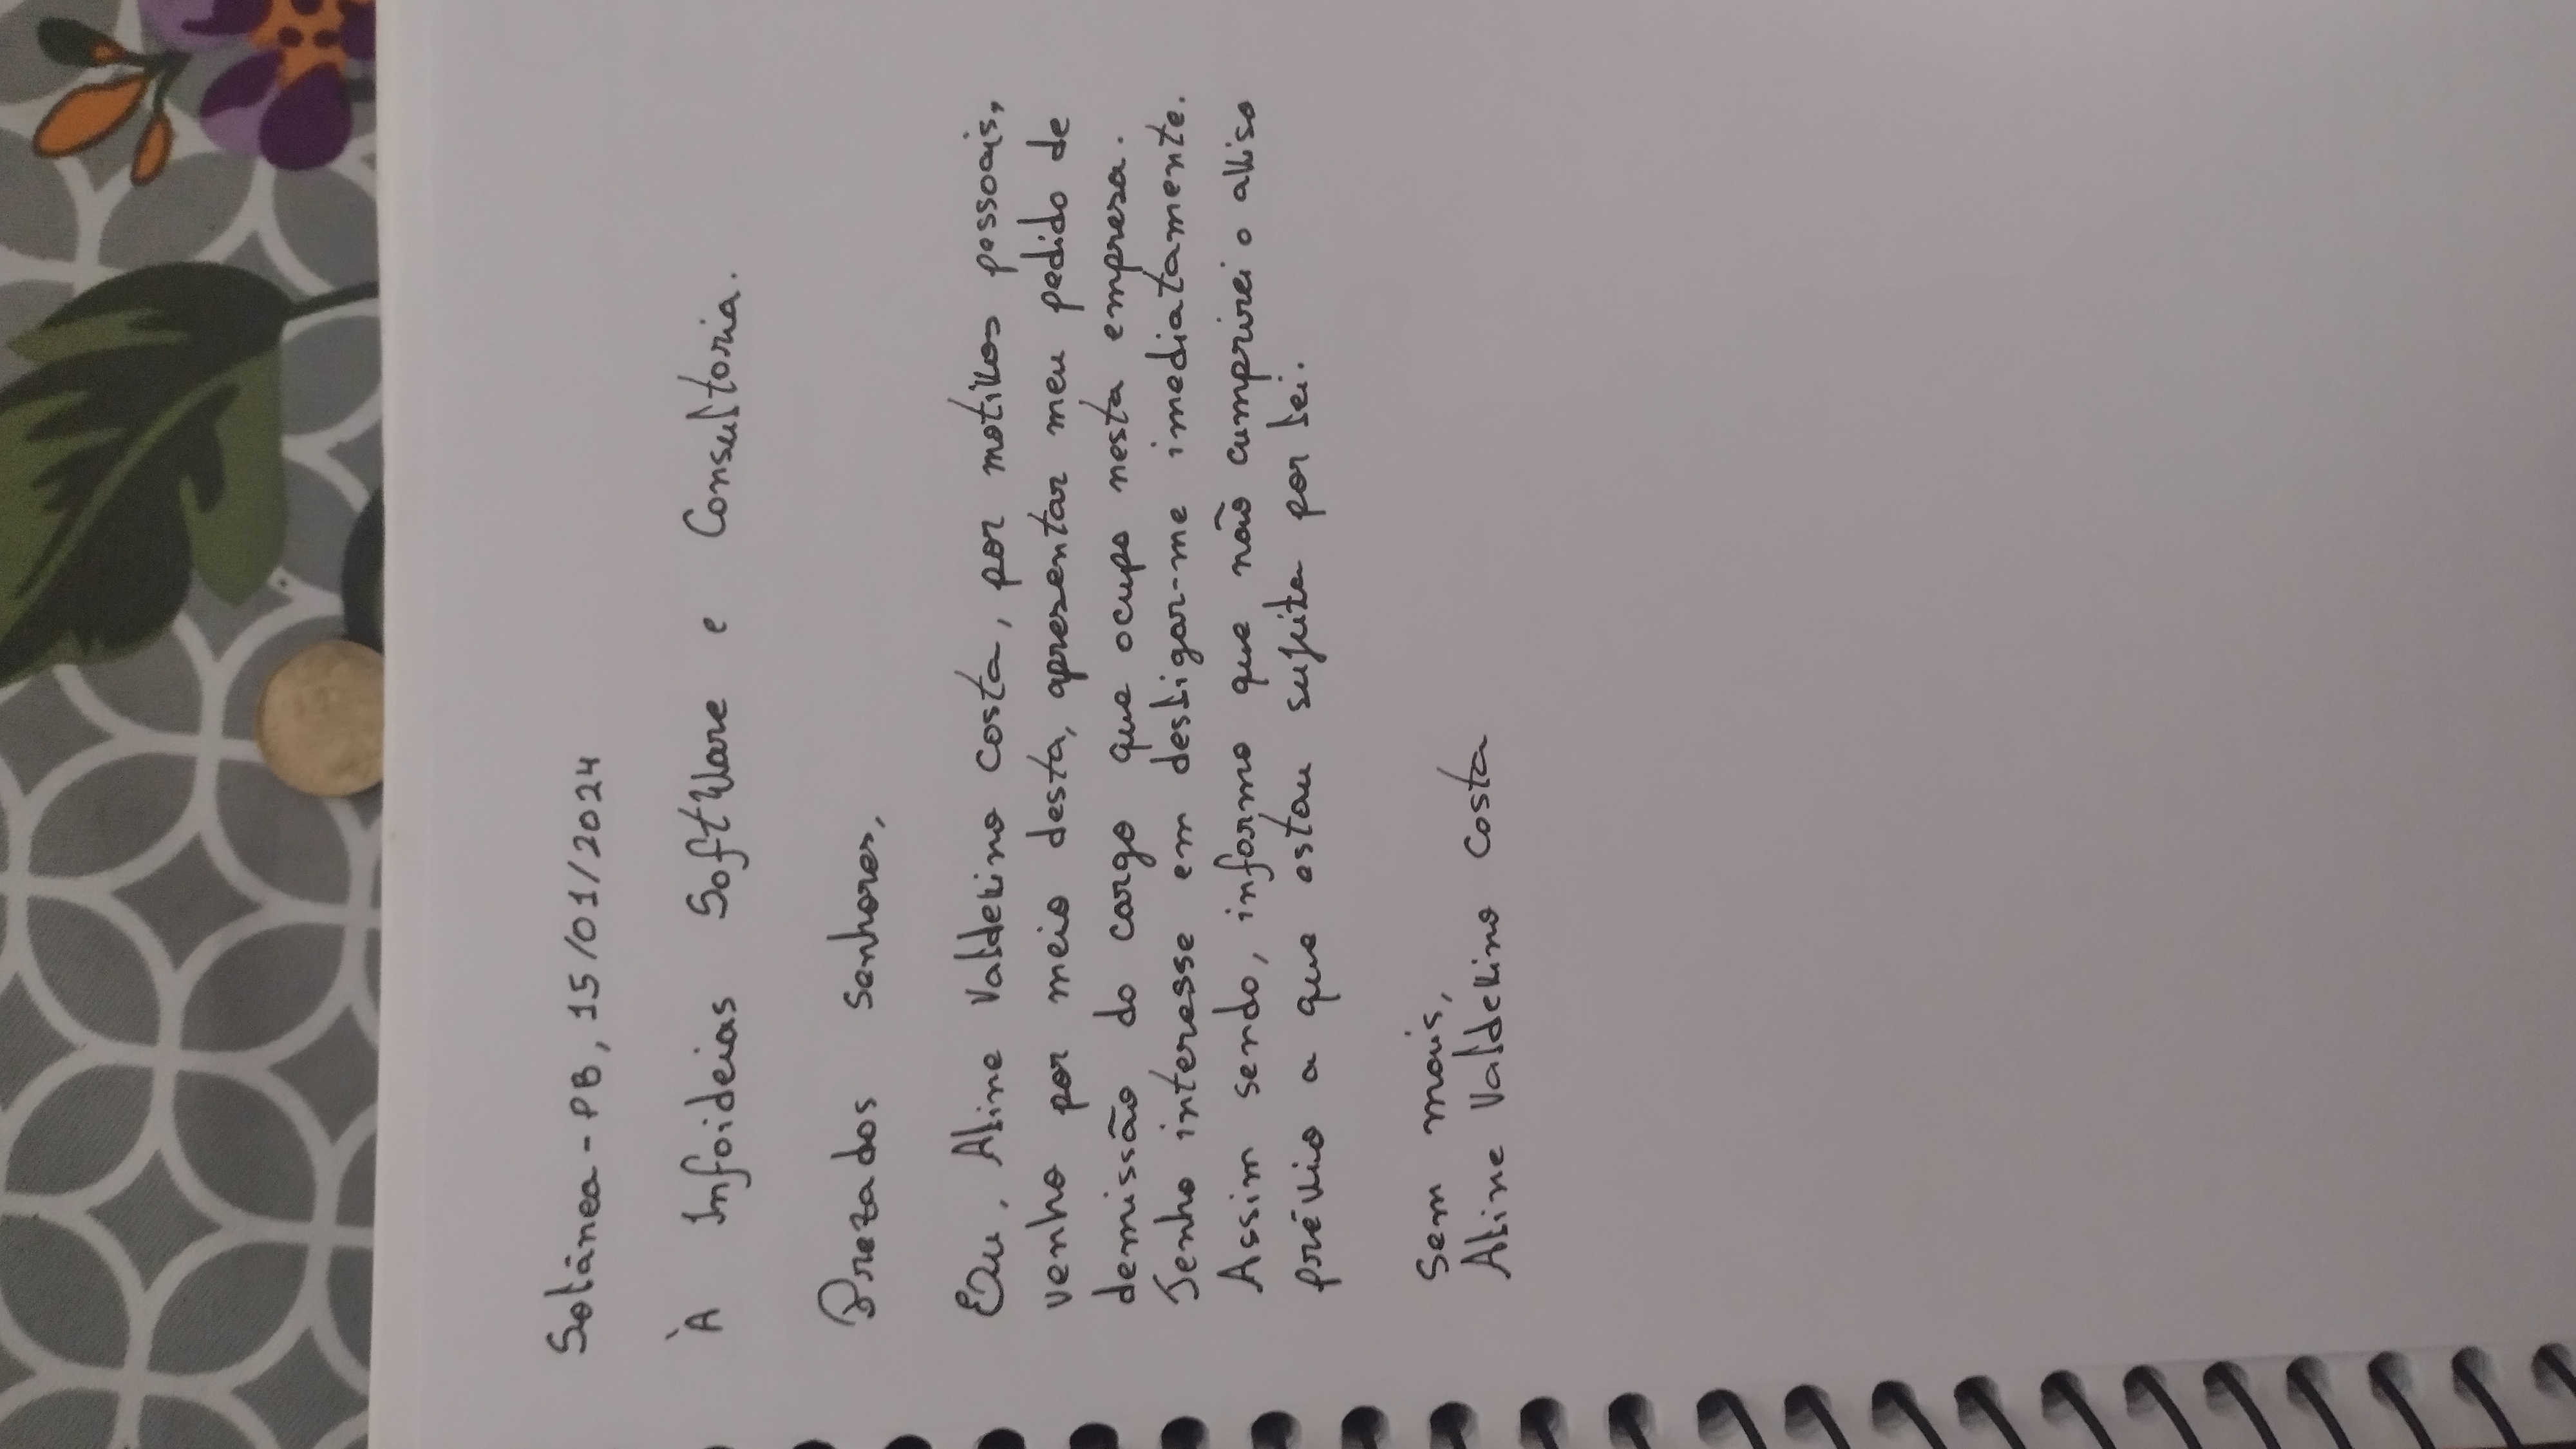 Solânea - PB, 15/01/2024
À Infoideias Software e Consultoria.
Prezados Senhores,
Eu, Aline Valdevino Costa, por motivos pessoais,
venho por meio desta, apresentar meu pedido de
demissão do cargo que ocupo nesta empresa.
Tenho interesse em desligar-me imediatamente.
Assim sendo, informo que não cumprirei o aviso
prévio a que estou sujeita por lei.
Sem mais,
Aline Valdevino Costa